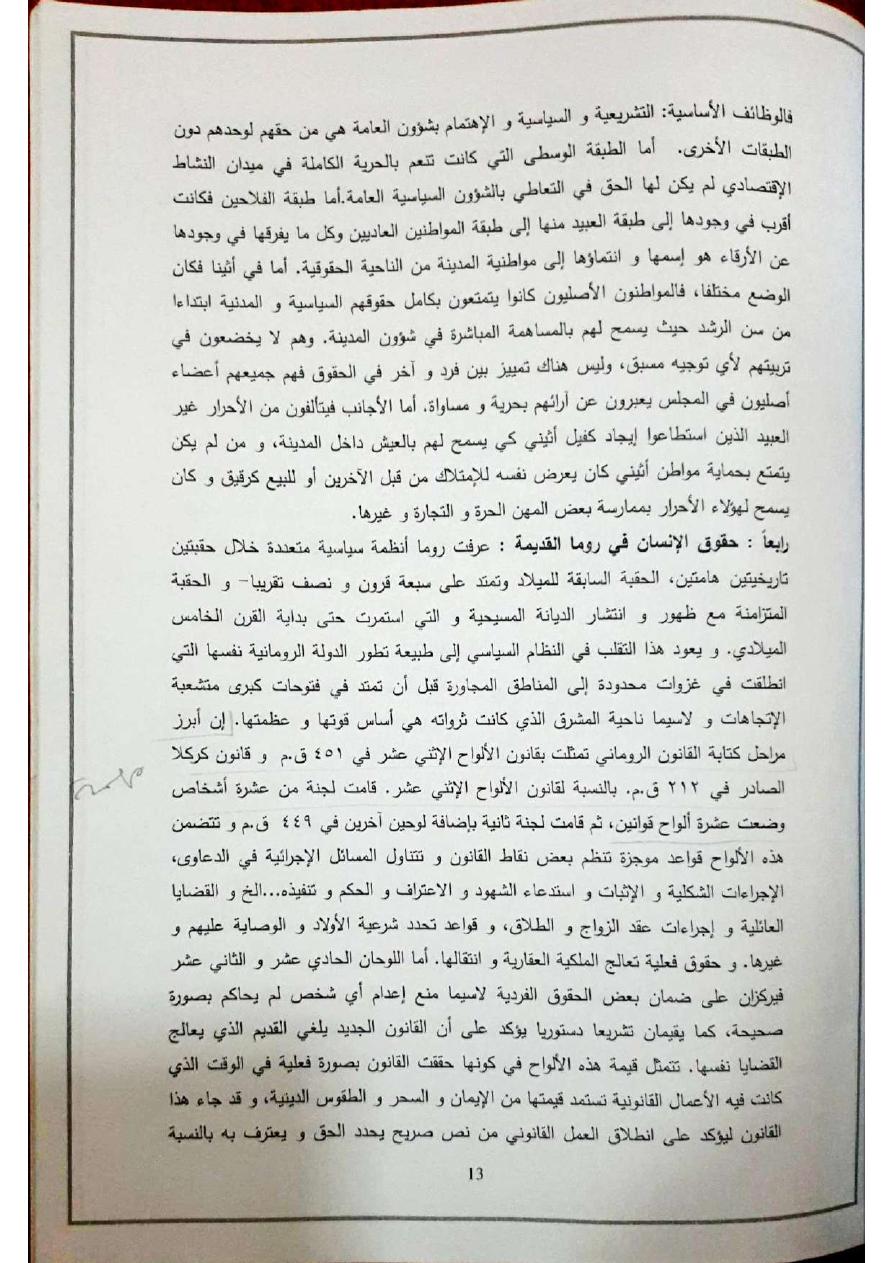 فالوظائف الأساسية: التشريعية و السياسية و الإهتمام بشؤون العامة هي من حقهم لوحدهم دون
الطبقات الأخرى. أما الطبقة الوسطى التي كانت تتعم بالحرية الكاملة في ميدان النشاط
الإقتصادي لم يكن لها الحق في التعاطي بالشؤون السياسية العامة.أما طبقة الفلاحين فكانت
أقرب في وجودها إلى طبقة العبيد منها إلى طبقة المواطنين العاديين وكل ما يفرقها في وجودها
عن الأرقاء هو إسمها و انتماؤها إلى مواطنية المدينة من الناحية الحقوقية. أما في أثينا فكان
الوضع مختلفا، فالمواطنون الأصليون كانوا يتمتعون بكامل حقوقهم السياسية و المدنية ابتداءا
من سن الرشد حيث يسمح لهم بالمساهمة المباشرة في شؤون المدينة. وهم لا يخضعون في
تربيتهم لأي توجيه مسبق، وليس هناك تمييز بين فرد و آخر في الحقوق فهم جميعهم أعضاء
أصليون في المجلس يعبرون عن آرائهم بحرية و مساواة. أما الأجانب فيتألفون من الأحرار غير
العبيد الذين استطاعوا إيجاد كفيل أثيني كي يسمح لهم بالعيش داخل المدينة، و من لم يكن
يتمتع بحماية مواطن أثيني كان يعرض نفسه للإمتلاك من قبل الآخرين أو للبيع كرقيق و كان
يسمح لهؤلاء الأحرار بممارسة بعض المهن الحرة و التجارة و غيرها.
رابعاً : حقوق الإنسان في روما القديمة : عرفت روما أنظمة سياسية متعددة خلال حقبتين
تاريخيتين هامتين، الحقبة السابقة للميلاد وتمتد على سبعة قرون و نصف تقريبا- و الحقبة
المتزامنة مع ظهور و انتشار الديانة المسيحية و التي استمرت حتى بداية القرن الخامس
الميلادي. و يعود هذا التقلب في النظام السياسي إلى طبيعة تطور الدولة الرومانية نفسها التي
انطلقت في غزوات محدودة إلى المناطق المجاورة قبل أن تمتد في فتوحات كبرى متشعبة
الإتجاهات و لاسيما ناحية المشرق الذي كانت ثرواته هي أساس قوتها و عظمتها. إن أبرز
مراحل كتابة القانون الروماني تمثلت بقانون الألواح الإثني عشر في ٤٥١ ق.م و قانون كركلا
الصادر في ٢١٢ ق.م. بالنسبة لقانون الألواح الإثني عشر. قامت لجنة من عشرة أشخاص
وضعت عشرة ألواح قوانين، ثم قامت لجنة ثانية بإضافة لوحين آخرين في ٤٤٩ ق.م و تتضمن
هذه الألواح قواعد موجزة تنظم بعض نقاط القانون و تتناول المسائل الإجرائية في الدعاوى،
الإجراءات الشكلية و الإثبات و استدعاء الشهود و الاعتراف و الحكم و تنفيذه...الخ و القضايا
العائلية و إجراءات عقد الزواج و الطلاق، و قواعد تحدد شرعية الأولاد و الوصاية عليهم و
غيرها. و حقوق فعلية تعالج الملكية العقارية و انتقالها. أما اللوحان الحادي عشر و الثاني عشر
فيركزان على ضمان بعض الحقوق الفردية لاسيما منع إعدام أي شخص لم يحاكم بصورة
صحيحة، كما يقيمان تشريعا دستوريا يؤكد على أن القانون الجديد يلغي القديم الذي يعالج
القضايا نفسها. تتمثل قيمة هذه الألواح في كونها حققت القانون بصورة فعلية في الوقت الذي
كانت فيه الأعمال القانونية تستمد قيمتها من الإيمان و السحر و الطقوس الدينية، و قد جاء هذا
القانون ليؤكد على انطلاق العمل القانوني من نص صريح يحدد الحق و يعترف به بالنسبة
13